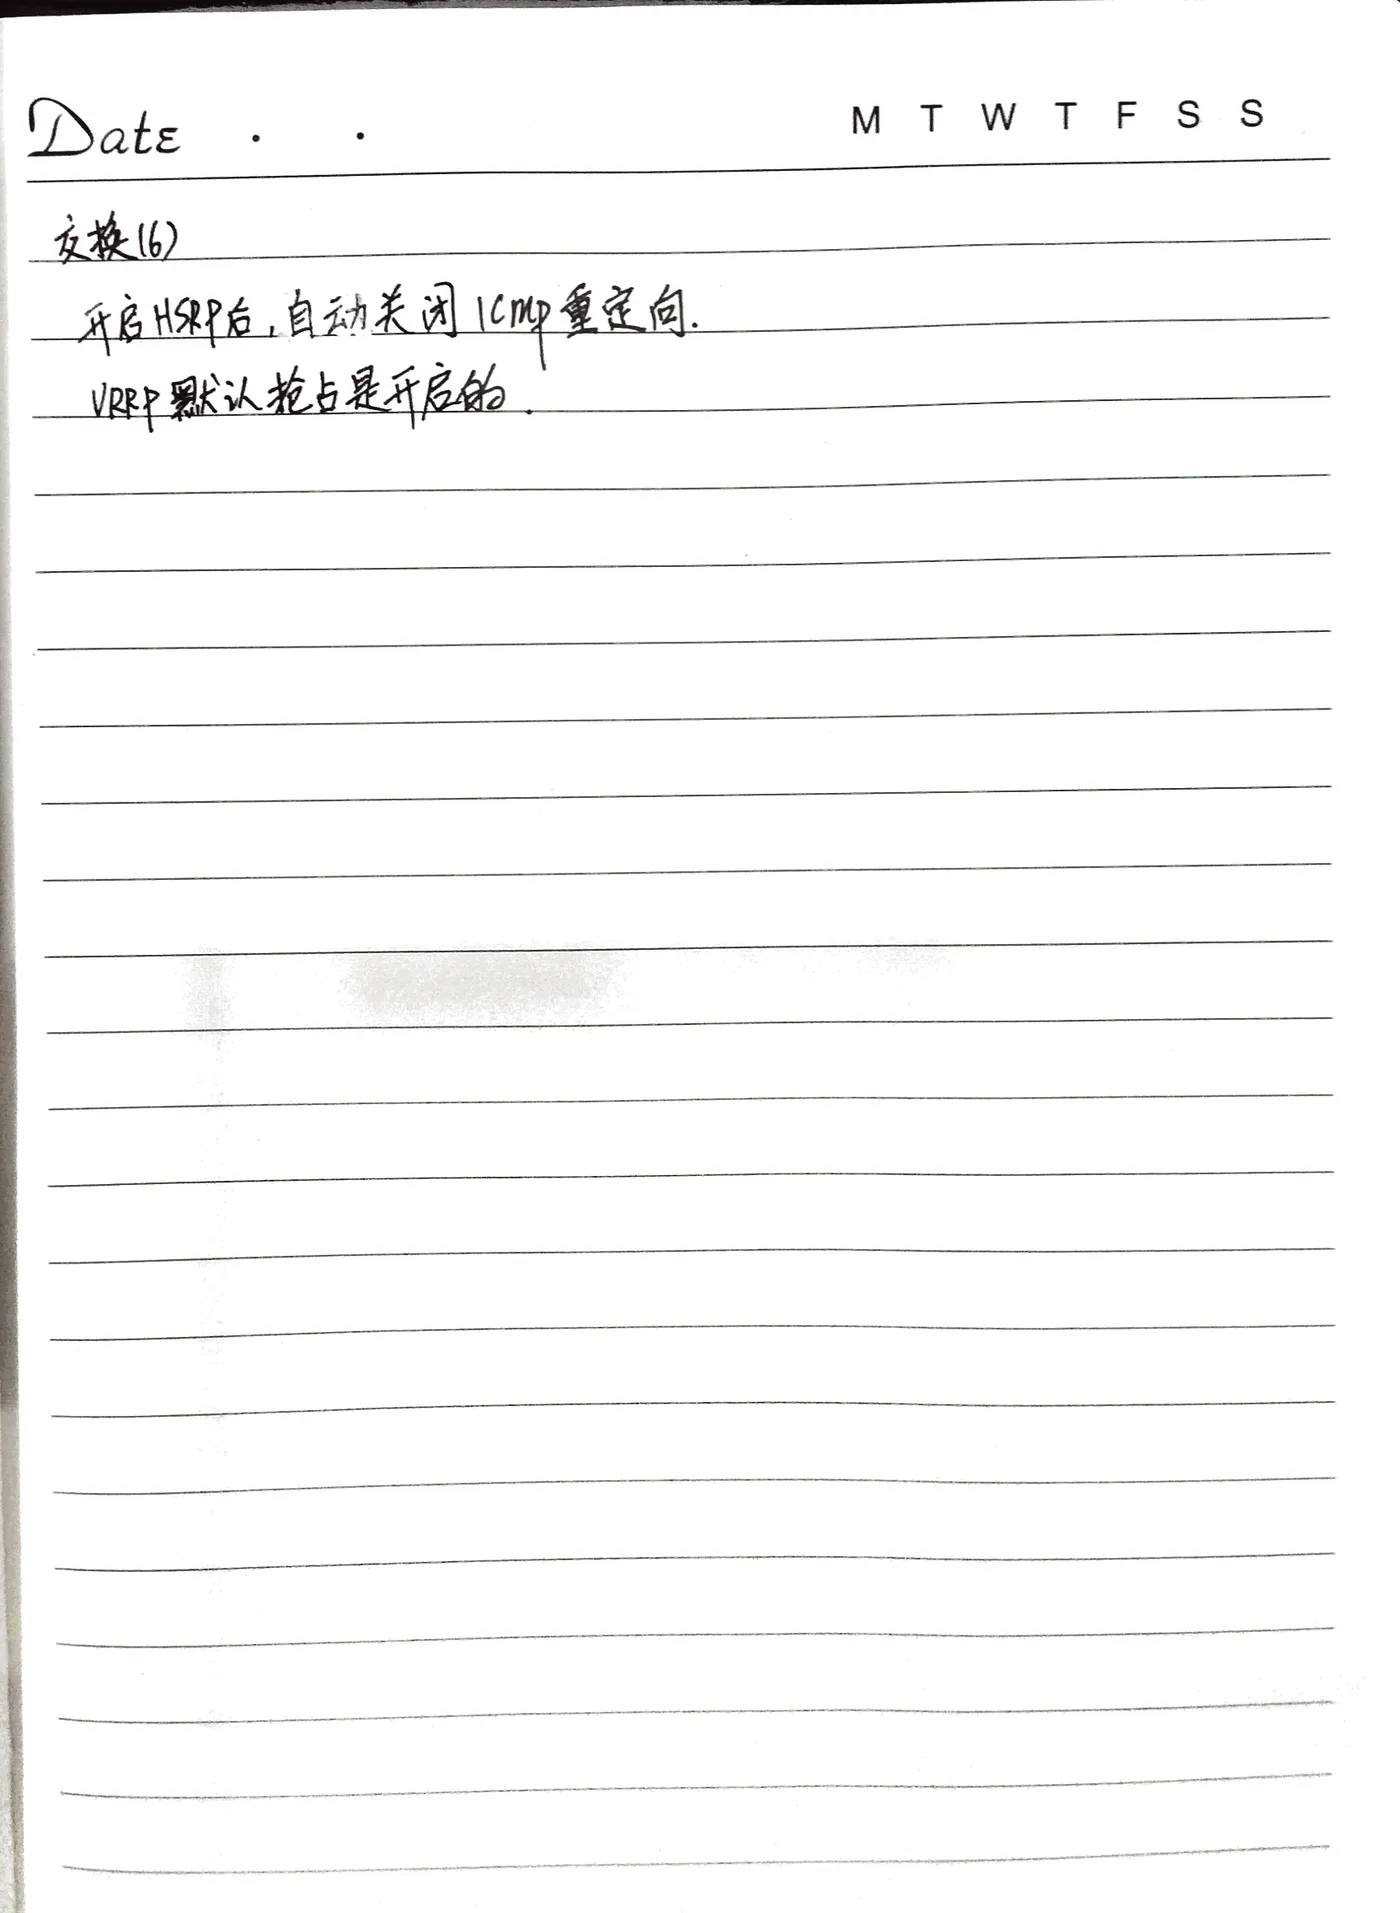 Date . . M T W T F S S
交换(6)
开启HSRP后,自动关闭ICMP重定向.
VRRP默认抢占是开启的.